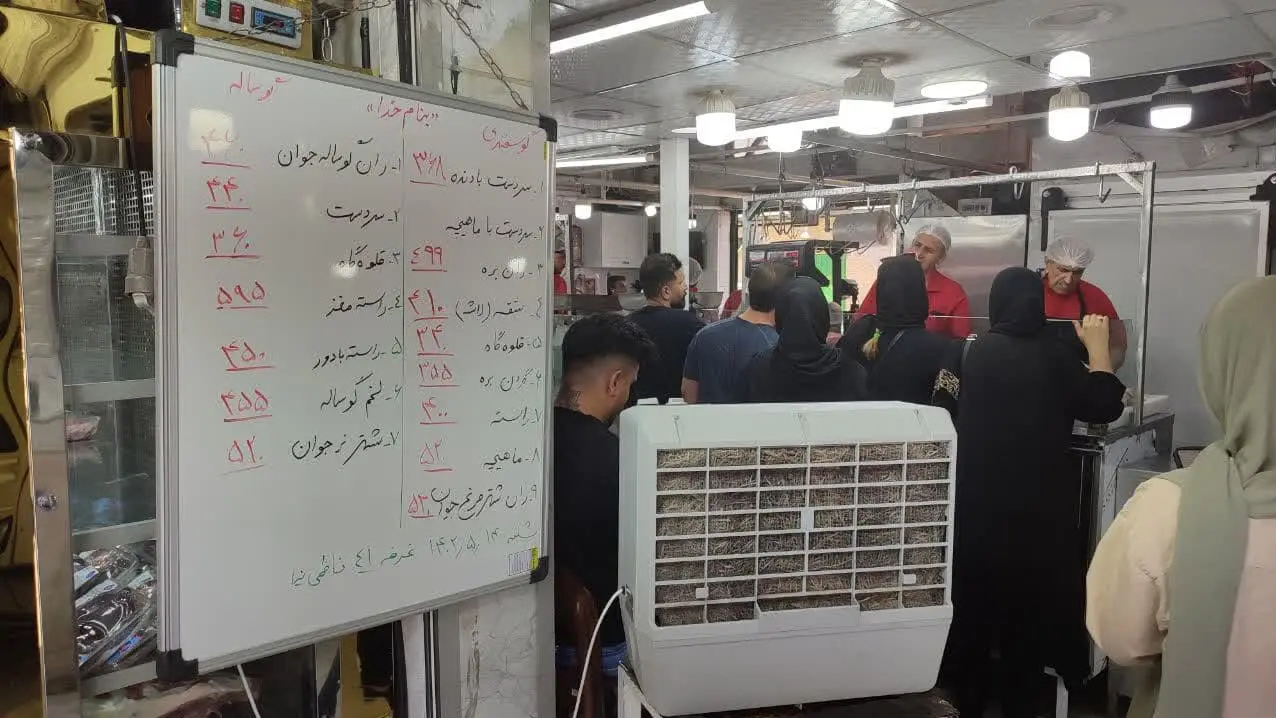 «بنام خدا»
گوسفندی
۱- سردست با دنده ۳۶۸
۲- سردست با ماهیچه
۳- ران بره ۴۹۹
۴- شقه (لاشه) ۴۱۰
۵- قلوه گاه ۳۴۰
۶- گردن بره ۳۵۵
۷- راسته ۴۰۰
۸- ماهیچه ۵۲۰
۹- ران شتر مرغ جوان ۵۳۰
گوساله
۱- ران گوساله جوان
۲- سردست ۴۴۰
۳- قلوه گاه ۳۶۰
۴- راسته مغز ۵۹۵
۵- راسته بادور ۴۵۰
۶- لخم گوساله ۴۵۵
۷- شتر نر جوان ۵۲۰
شنبه ۱۴۰۲/۵/۱۴ غرفه ۴۱ فاطمی نیا